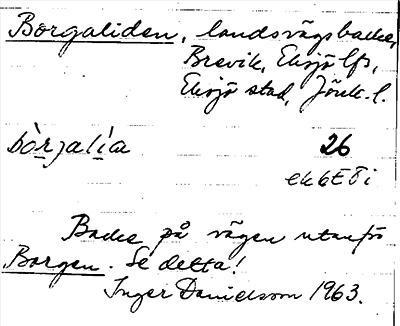 Borgaliden, landsvägsbacke,
Brevik, Eksjö lfs,
Eksjö stad, Jönk. l.
bòrjalía 26
ek6E8i
Backe på vägen utanför
Borgen. Se detta!
Inger Danielsson 1963.